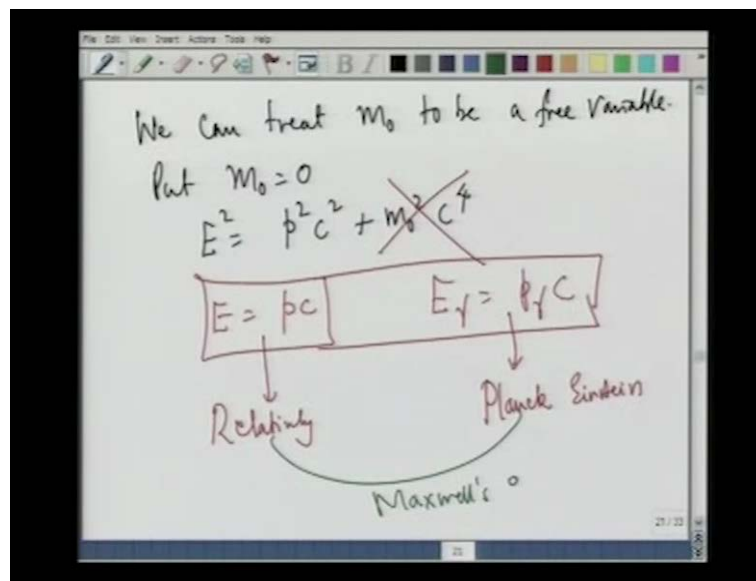 File Edit View Insert Actions Tools Help
B I
We can treat m₀ to be a free variable.
Put m₀ = 0
E² = p²c² + m₀²c⁴
E = pc E_γ = p_γ c
Relativity Planck Einstein
Maxwell's
21/33
21